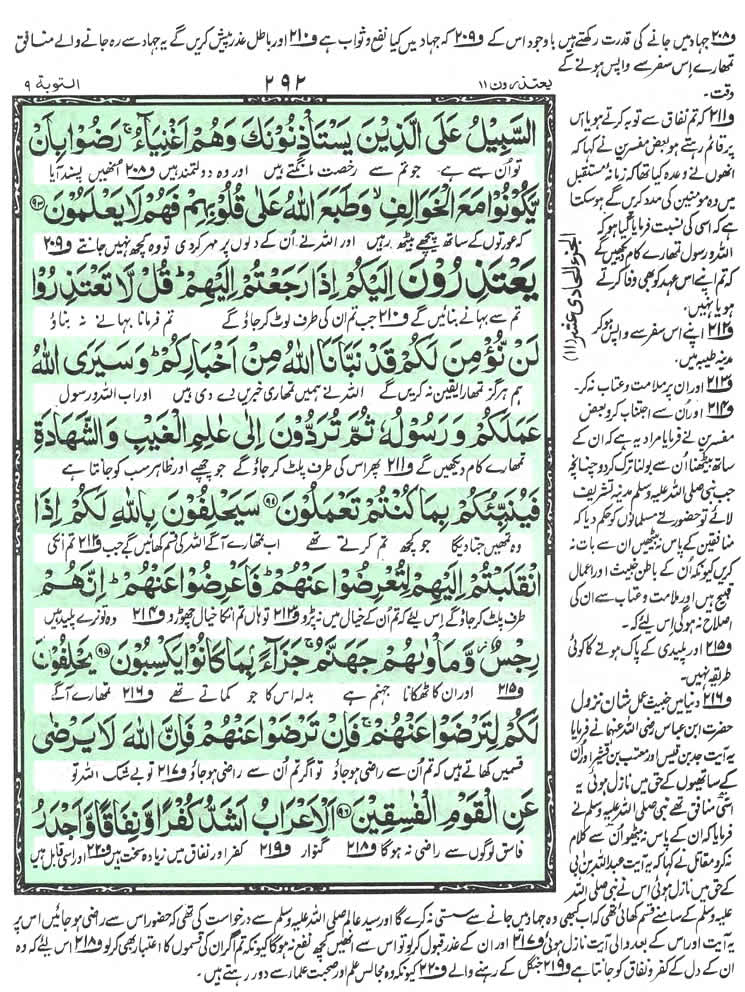 و۲۰۸ جہاد میں جانے کی قدرت رکھتے ہیں باوجود اس کے و۲۰۹ کہ جہاد میں کیا نفع و ثواب ہے و۲۱۰ اور باطل عذر پیش کریں گے یہ جہاد سے رہ جانے والے منافق
تمھارے اس سفر سے واپس ہونے کے
وقت۔
یعتذرون ۱۱
۲۹۲
التوبة ۹
السَّبِيْلُ عَلَى الَّذِيْنَ يَسْتَاْذِنُوْنَكَ وَهُمْ اَغْنِيَآءُ ۚ رَضُوْا بِاَنْ
تو اُن سے ہے جو تم سے رخصت مانگتے ہیں اور وہ دولتمند ہیں و۲۰۸ انھیں پسند آیا
يَّكُوْنُوْا مَعَ الْخَوَالِفِ ۙ وَطَبَعَ اللّٰهُ عَلٰى قُلُوْبِهِمْ فَهُمْ لَا يَعْلَمُوْنَ ۹۳
کہ عورتوں کے ساتھ پیچھے بیٹھ رہیں اور اللہ نے اُن کے دلوں پر مہر کردی تو وہ کچھ نہیں جانتے و۲۰۹
يَعْتَذِرُوْنَ اِلَيْكُمْ اِذَا رَجَعْتُمْ اِلَيْهِمْ ؕ قُلْ لَّا تَعْتَذِرُوْا
تم سے بہانے بنائیں گے و۲۱۰ جب تم ان کی طرف لوٹ کر جاؤ گے تم فرمانا بہانے نہ بناؤ
لَنْ نُّؤْمِنَ لَكُمْ قَدْ نَبَّاَنَا اللّٰهُ مِنْ اَخْبَارِكُمْ ؕ وَسَيَرَى اللّٰهُ
ہم ہرگز تمھارا یقین نہ کریں گے اللہ نے ہمیں تمھاری خبریں دے دی ہیں اور اب اللہ و رسول
عَمَلَكُمْ وَرَسُوْلُهٗ ثُمَّ تُرَدُّوْنَ اِلٰى عٰلِمِ الْغَيْبِ وَالشَّهَادَةِ
تمھارے کام دیکھیں گے و۲۱۱ پھر اس کی طرف پلٹ کر جاؤ گے جو چھپے اور ظاہر سب کو جانتا ہے
فَيُنَبِّئُكُمْ بِمَا كُنْتُمْ تَعْمَلُوْنَ ۹۴ سَيَحْلِفُوْنَ بِاللّٰهِ لَكُمْ اِذَا
وہ تمھیں جتا دیگا جو کچھ تم کرتے تھے اب تمھارے آگے اللہ کی قسم کھائیں گے جب و۲۱۲ تم انکی
انْقَلَبْتُمْ اِلَيْهِمْ لِتُعْرِضُوْا عَنْهُمْ ؕ فَاَعْرِضُوْا عَنْهُمْ ؕ اِنَّهُمْ
طرف پلٹ کر جاؤ گے اس لئے کہ تم ان کے خیال میں نہ پڑو و۲۱۳ تو ہاں تم انکا خیال چھوڑو و۲۱۴ وہ تو نرے پلید ہیں
رِجْسٌ ؗ وَّمَاْوٰىهُمْ جَهَنَّمُ ۚ جَزَآءًۢ بِمَا كَانُوْا يَكْسِبُوْنَ ۹۵ يَحْلِفُوْنَ
و۲۱۵ اور ان کا ٹھکانا جہنم ہے بدلہ اس کا جو کماتے تھے و۲۱۶ تمھارے آگے
لَكُمْ لِتَرْضَوْا عَنْهُمْ ۚ فَاِنْ تَرْضَوْا عَنْهُمْ فَاِنَّ اللّٰهَ لَا يَرْضٰى
قسمیں کھاتے ہیں کہ تم اُن سے راضی ہو جاؤ تو اگر تم اُن سے راضی ہو جاؤ و۲۱۷ تو بے شک اللہ تو
عَنِ الْقَوْمِ الْفٰسِقِيْنَ ۹۶ اَلْاَعْرَابُ اَشَدُّ كُفْرًا وَّنِفَاقًا وَّاَجْدَرُ
فاسق لوگوں سے راضی نہ ہوگا و۲۱۸ گنوار و۲۱۹ کفر اور نفاق میں زیادہ سخت ہیں و۲۲۰ اور اسی قابل ہیں
الجزء الحادی عشر (۱۱)
و۲۱۱ کہ تم نفاق سے توبہ کرتے ہو یا اس
پر قائم رہتے ہو بعض مفسرین نے کہا کہ
انھوں نے وعدہ کیا تھا کہ زمانہ مستقبل
میں وہ مومنین کی مدد کریں گے ہو سکتا
ہے کہ اسی کی نسبت فرمایا گیا ہو کہ
اللہ و رسول تمھارے کام دیکھیں گے
کہ تم اپنے اس عہد کو بھی وفا کرتے
ہو یا نہیں۔
و۲۱۲ اپنے اس سفر سے واپس ہو کر
مدینہ طیبہ میں۔
و۲۱۳ اور ان پر ملامت و عتاب نہ کر۔
و۲۱۴ اور اُن سے اجتناب کرو بعض
مفسرین نے فرمایا مراد یہ ہے کہ ان کے
ساتھ بیٹھنا اُن سے بولنا ترک کردو چنانچہ
جب نبی صلی اللہ علیہ وسلم مدینہ تشریف
لائے تو حضور نے مسلمانوں کو حکم دیا کہ
منافقین کے پاس نہ بیٹھیں ان سے بات نہ
کریں کیونکہ اُن کے باطن خبیث اور اعمال
قبیح ہیں اور ملامت و عتاب سے ان کی
اصلاح نہ ہوگی اس لیے کہ۔
و۲۱۵ اور پلیدی کے پاک ہونے کا کوئی
طریقہ نہیں۔
و۲۱۶ دنیا میں خبیث عمل شان نزول
حضرت ابن عباس رضی اللہ عنہما نے فرمایا
یہ آیت جد بن قیس اور معتب بن قشیر اور ان
کے ساتھیوں کے حق میں نازل ہوئی یہ
اسّی منافق تھے نبی صلی اللہ علیہ وسلم نے
فرمایا کہ ان کے پاس نہ بیٹھو اُن سے کلام
نہ کرو مقاتل نے کہا کہ یہ آیت عبد اللہ بن اُبی
کے حق میں نازل ہوئی اس نے نبی صلی اللہ
علیہ وسلم کے سامنے قسم کھائی تھی کہ اب کبھی وہ جہاد میں جانے سے سستی نہ کرے گا اور سید عالم صلی اللہ علیہ وسلم سے درخواست کی تھی کہ حضور اس سے راضی ہو جائیں اس پر
یہ آیت اور اس کے بعد والی آیت نازل ہوئی و۲۱۷ اور ان کے عذر قبول کرلو تو اس سے انھیں کچھ نفع نہ ہوگا کیونکہ تم اگر ان کی قسموں کا اعتبار بھی کرلو و۲۱۸ اس لیے کہ وہ
ان کے دل کے کفر و نفاق کو جانتا ہے و۲۱۹ جنگل کے رہنے والے و۲۲۰ کیونکہ وہ مجالس علم اور صحبت علما سے دور رہتے ہیں۔